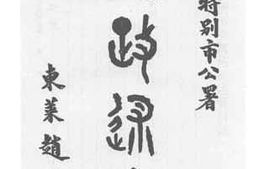 特别市公署
政
東萊趙